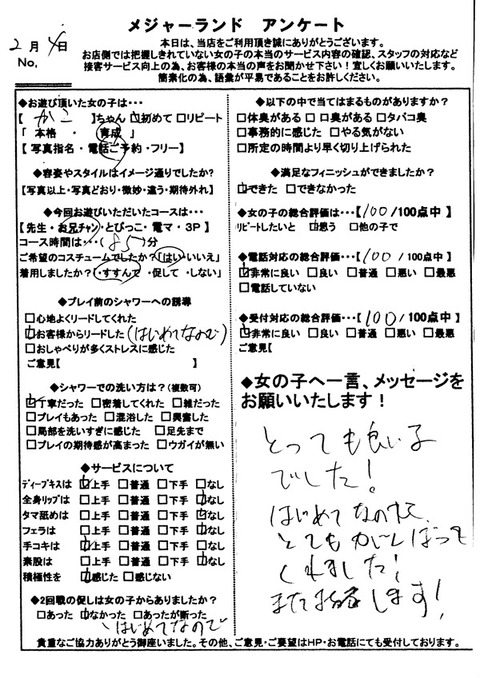 メジャーランド アンケート
2月4日
No.
本日は、当店をご利用頂き誠にありがとうございます。
お店側では把握しきれていない女の子の本当のサービス内容の確認、スタッフの対応など
接客サービス向上の為、お客様の本当の声をお聞かせ下さい！宜しくお願いいたします。
簡素化の為、語彙が平易であることをお許しください。
◆お遊び頂いた女の子は・・・
【 かこ 】ちゃん □初めて □リピート
「 本格 ・ 育成 」
【 写真指名・電話ご予約・フリー】
◆容姿やスタイルはイメージ通りでしたか?
【写真以上・写真どおり・微妙・違う・期待外れ】
◆今回お遊びいただいたコースは・・・
【先生・お兄チャン・とびっこ・電マ・3P】
コース時間は・・・( 85 )分
ご希望のコスチュームでしたか？「はい・いいえ」
着用しましたか?「・すすんで ・促して ・しない」
◆プレイ前のシャワーへの誘導
□心地よくリードしてくれた
□お客様からリードした(はじめてなので)
□おしゃべりが多くストレスに感じた
ご意見【 】
◆シャワーでの洗い方は？(複数可)
□丁寧だった □密着してくれた □雑だった
□プレイもあった □混浴した □興奮した
□局部を洗いすぎに感じた □足先まで
□プレイの期待感が高まった □ウガイが無い
◆サービスについて
ディープキスは □上手 □普通 □下手 □なし
全身リップは □上手 □普通 □下手 □なし
タマ舐めは □上手 □普通 □下手 □なし
フェラは □上手 □普通 □下手 □なし
手コキは □上手 □普通 □下手 □なし
素股は □上手 □普通 □下手 □なし
積極性を □感じた □感じない
◆2回戦の促しは女の子からありましたか？
□あった □なかった □あったが断った
はじめてなので
◆以下の中で当てはまるものがありますか？
□体臭がある □口臭がある □タバコ臭
□事務的に感じた □やる気がない
□所定の時間より早く切り上げられた
◆満足なフィニッシュができましたか？
□できた □できなかった
◆女の子の総合評価は・・・【100/100点中】
リピートしたいと □思う □他の子で
◆電話対応の総合評価・・・【100/100点中】
□非常に良い □良い □普通 □悪い □最悪
□電話していない
◆受付対応の総合評価・・・【100/100点中】
□非常に良い □良い □普通 □悪い □最悪
ご意見【 】
◆女の子へ一言、メッセージを
お願いいたします！
とっても良い子
でした！
はじめてなのに
とてもがんばって
くれました！
また指名します！
貴重なご協力ありがとう御座いました。その他、ご意見・ご要望はHP・お電話にても受付しております。